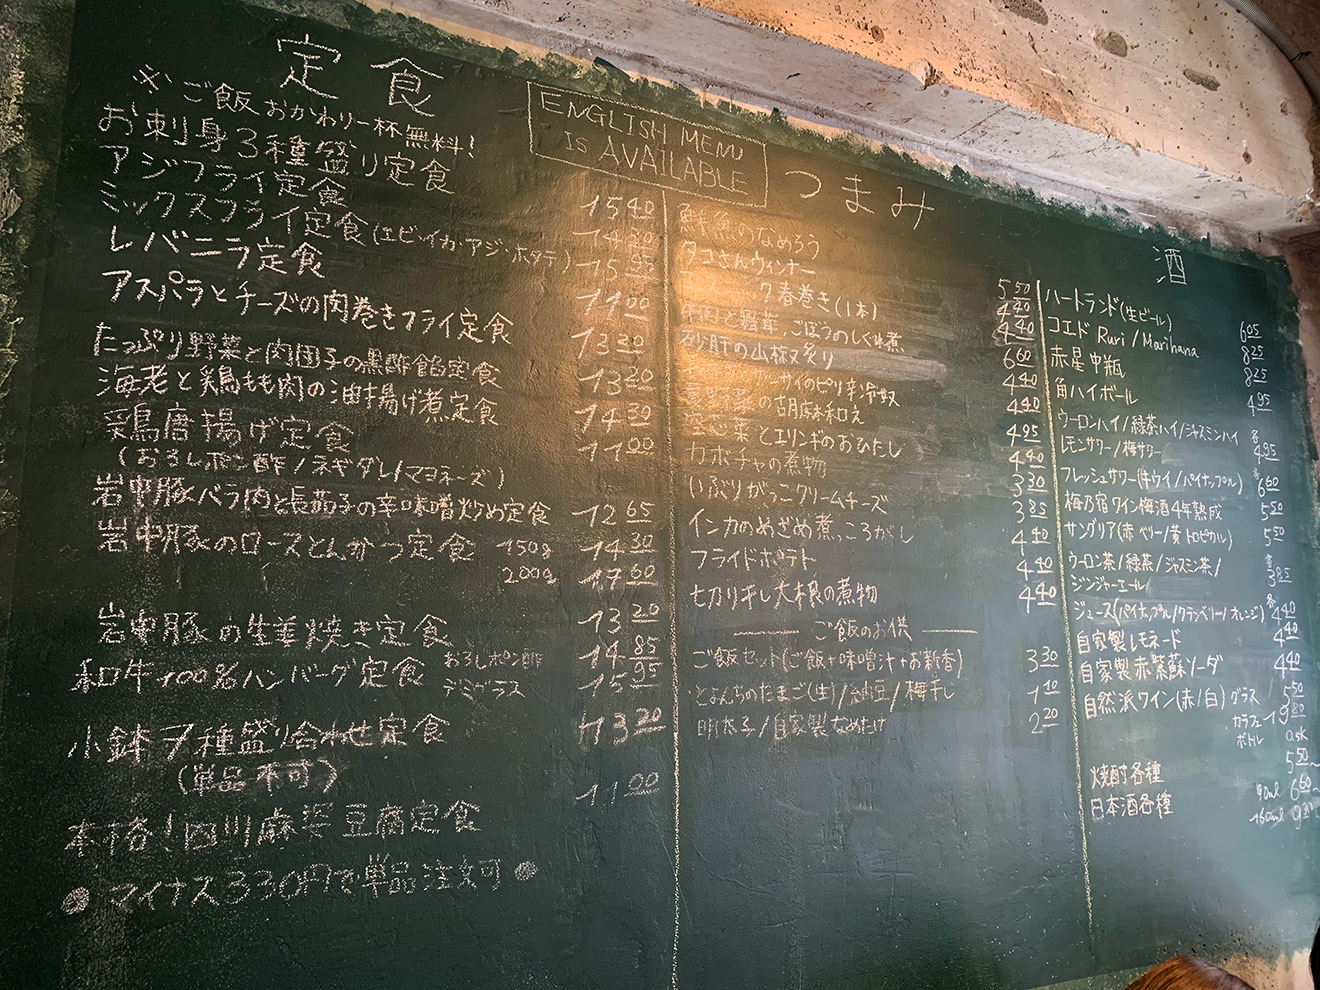 定食
※ご飯おかわり一杯無料!
お刺身3種盛り定食 1540
アジフライ定食 1430
ミックスフライ定食(エビ・イカ・アジ・ホタテ) 1595
レバニラ定食 1100
アスパラとチーズの肉巻きフライ定食 1330
たっぷり野菜と肉団子の黒酢餡定食 1320
海老と鶏もも肉の油揚げ煮定食 1430
鶏唐揚げ定食 1100
(おろしポン酢/ネギダレ/マヨネーズ)
岩中豚バラ肉と長茄子の辛味噌炒め定食 1265
岩中豚のロースとんかつ定食 150g 1430
200g 1760
岩中豚の生姜焼き定食 1320
和牛100%ハンバーグ定食 おろしポン酢 1485
デミグラス 1595
小鉢7種盛り合わせ定食 1320
(単品不可)
本格!四川麻婆豆腐定食 1100
●マイナス330円で単品注文可●
ENGLISH MENU
IS AVAILABLE
つまみ
鮮魚のなめろう 550
タコさんウィンナー 440
春巻き(1本) 440
牛肉と舞茸、ごぼうのしぐれ煮 660
砂肝の山椒炙り 440
ザーサイのピリ辛冷奴 440
夏野菜の胡麻和え 495
空心菜とエリンギのおひたし 440
カボチャの煮物 330
いぶりがっこクリームチーズ 385
インカのめざめ煮っころがし 440
フライドポテト 440
切り干し大根の煮物 440
ご飯のお供
ご飯セット(ご飯+味噌汁+お新香) 330
とよんちのたまご(生)/納豆/梅干し 110
明太子/自家製なめたけ 220
酒
ハートランド(生ビール) 605
コエド Ruri / Marihana 825
赤星中瓶 825
角ハイボール 495
ウーロンハイ/緑茶ハイ/ジャスミンハイ 各
レモンサワー/梅サワー 495
フレッシュサワー(キウイ/パイナップル) 各660
梅乃宿ワイン梅酒4年熟成 550
サングリア(赤 ベリー/黄 トロピカル) 550
ウーロン茶/緑茶/ジャスミン茶/
ジンジャーエール 各385
ジュース(パイナップル/クランベリー/オレンジ) 各440
自家製レモネード 440
自家製赤紫蘇ソーダ 440
自然派ワイン(赤/白) グラス 550
カラフェ
ボトル ask
焼酎各種 550~
日本酒各種 90ml 660~
160ml